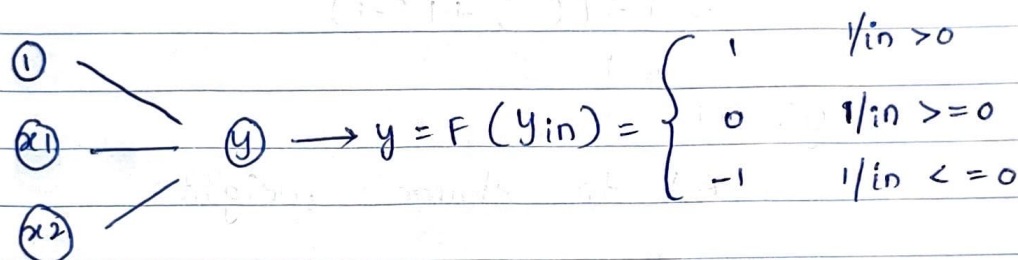 1
x1
x2
y → y = F (Yin) = { 1 1/in >0
0 1/in >=0
-1 1/in <=0